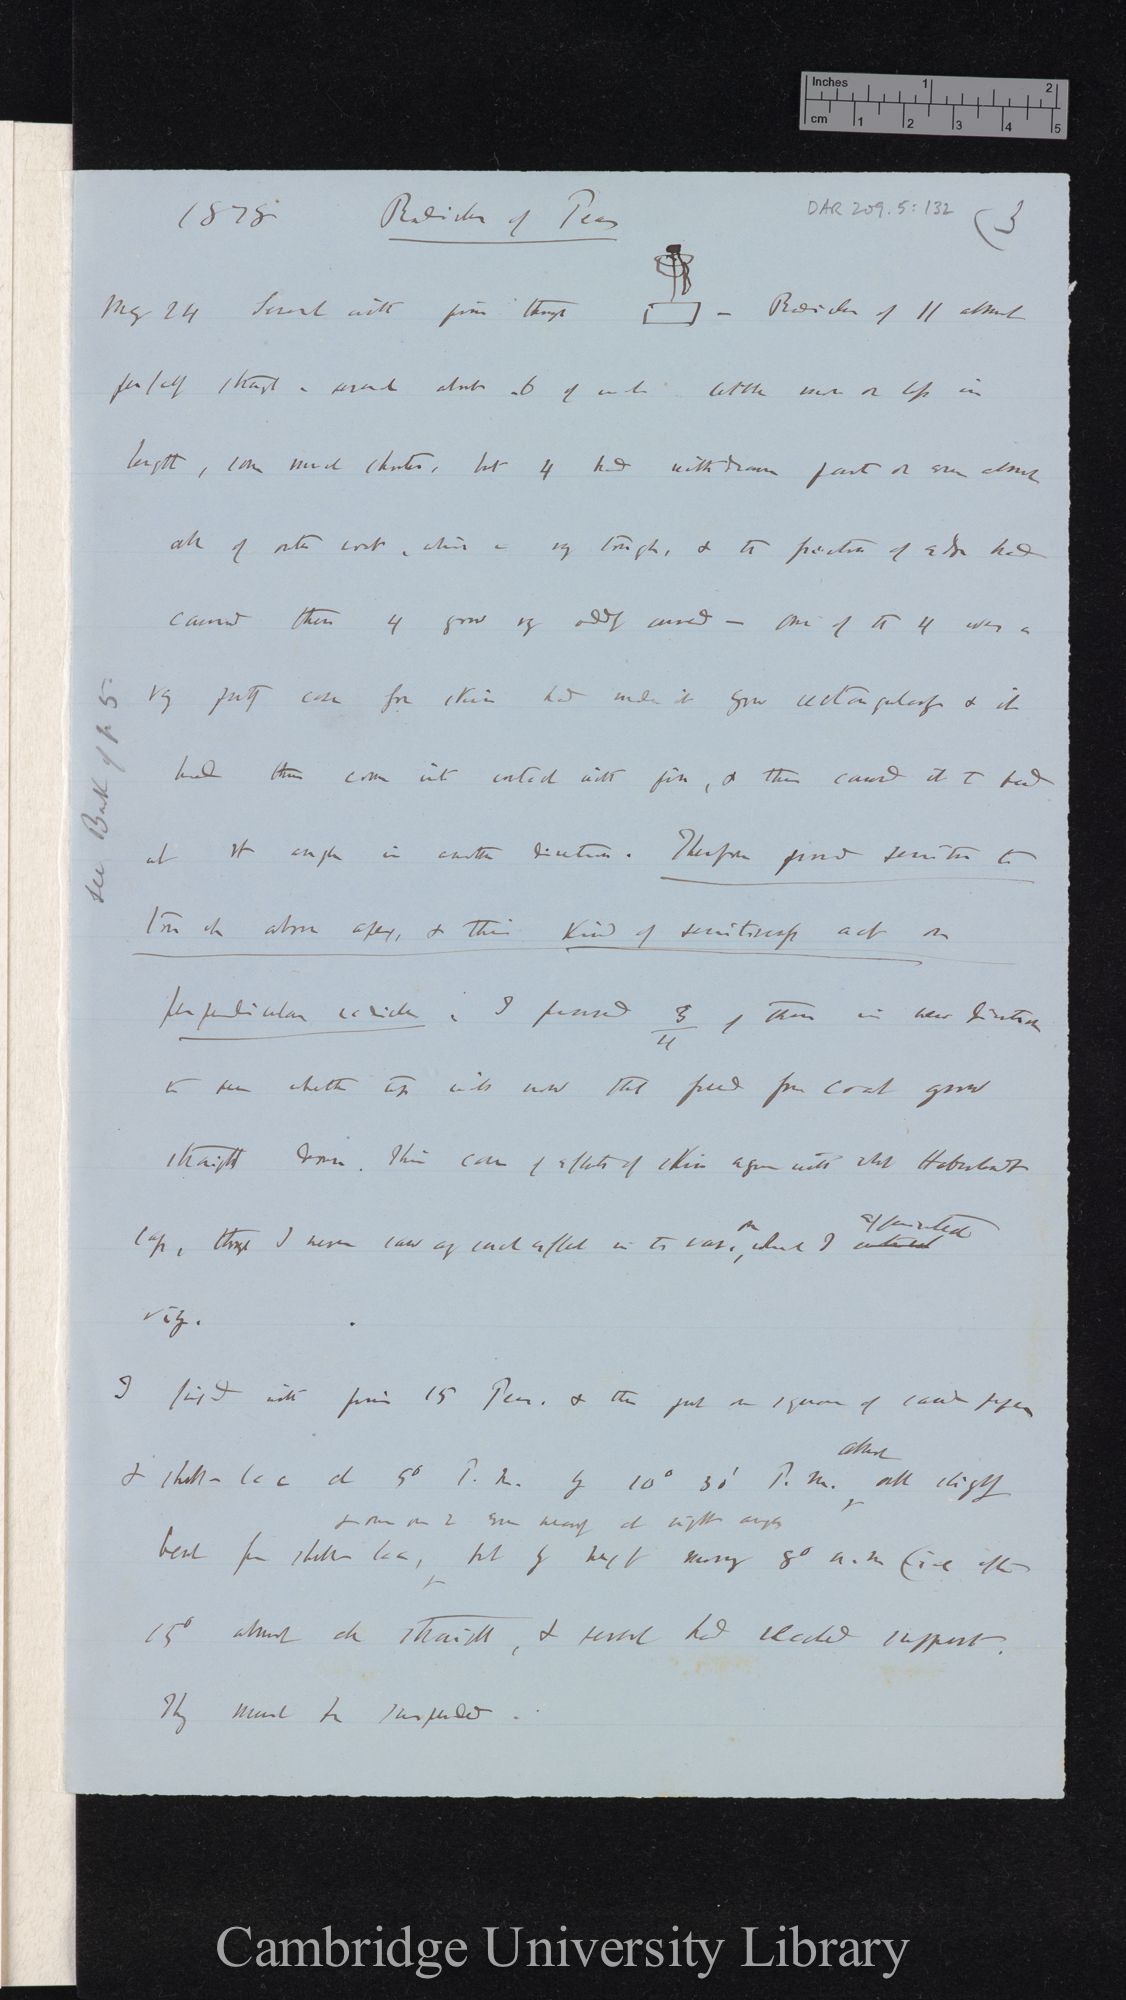 Inches 1 2
cm 1 2 3 4 5
1878 Radicles of Peas DAR 209.5:132 (3
May 24 Several with pins through — Radicles of 11 almost
perfectly straight & several about .6 of inch little more or less in
length, some much shorter, but 4 had withdrawn part or even almost
all of outer coat, which is very tough, & the friction of edge had
caused these 4 grow very oddly curved — One of the 4 was a
very pretty case for skin had made it grow rectangularly & it
had then come into contact with pin, & this caused it to bend
at rt angle in another direction. Therefore proved sensitive to
touch above apex, & this kind of sensitiveness act on
perpendicular radicles. I pinned 3/4 of them in new direction
to see whether tips will now that freed from coat grow
straight down. This case of effects of skin agrees with what Haberlandt
says, though I never saw any such effect in the case, on which I experimented
I pinned with pins 15 Peas. & then put on squares of card paper
& shell-lac at 5° P.M. by 10° 30' P.M. almost all slightly
& one or 2 even nearly at right angles
bent from shell-lac, but by next morning 8° a.m (ie after
15° almost all straight, & several had reached support.
They must be suspended.
see Back of p 5.
Cambridge University Library